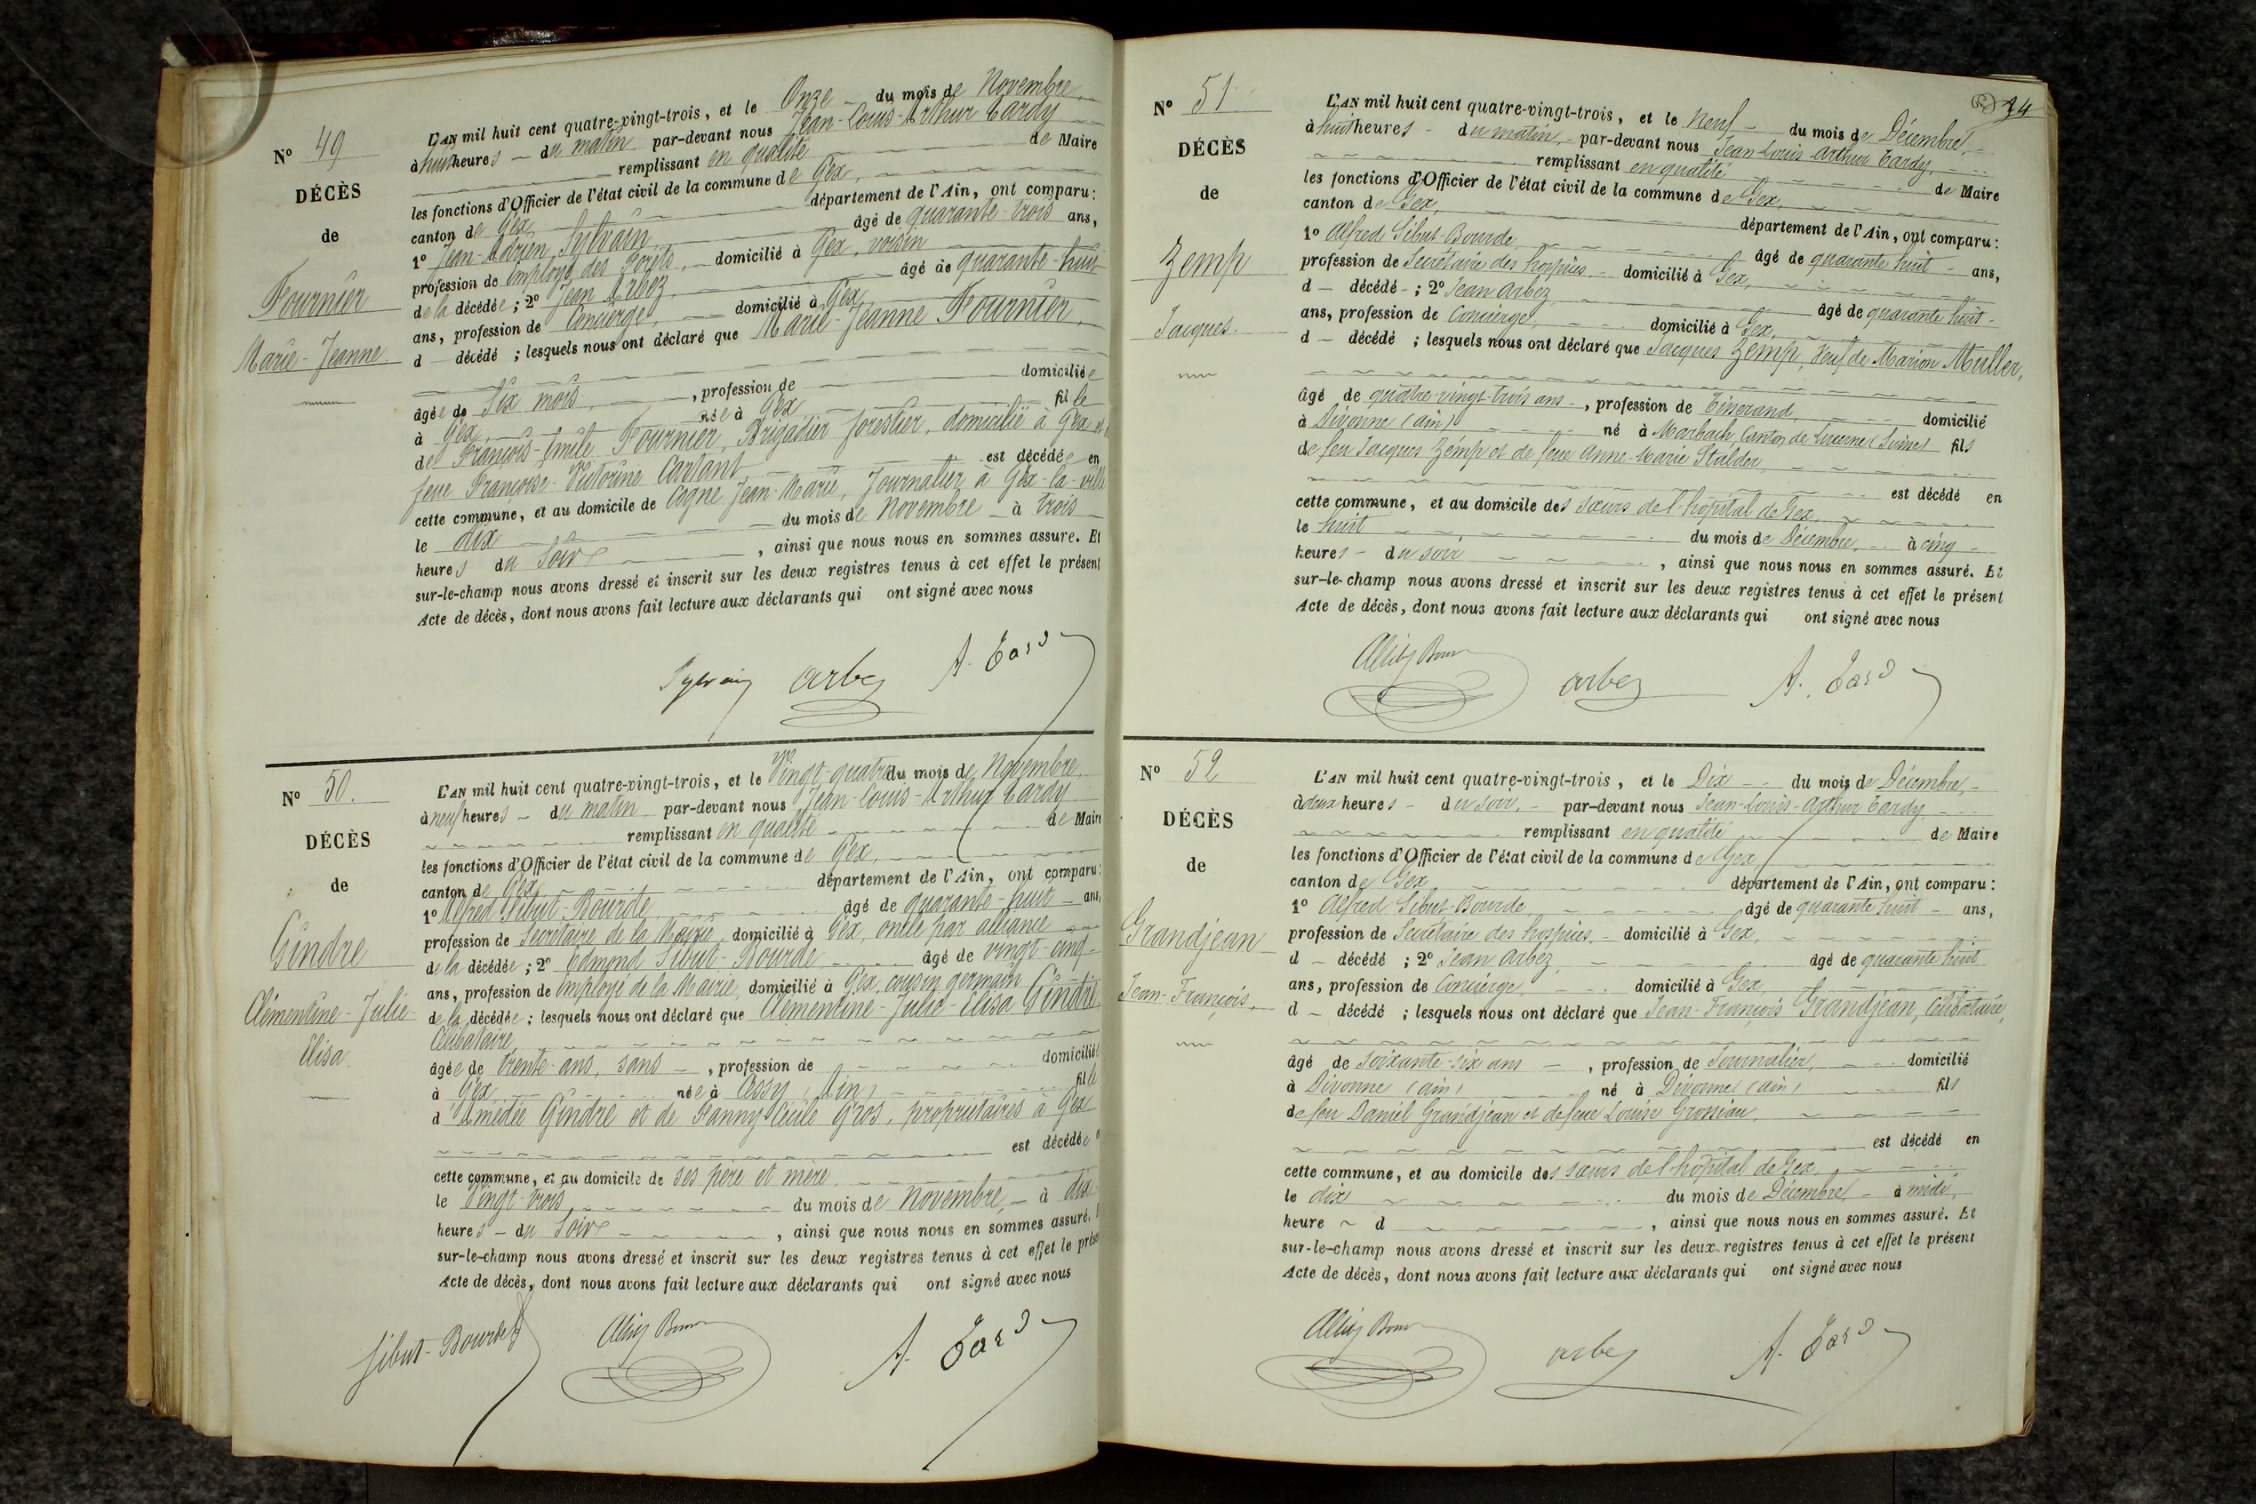 N° 49
DÉCÈS
de
Fournier
Marie-Jeanne
L'AN mil huit cent quatre-vingt-trois, et le Onze du mois de Novembre
à huit heures du matin par-devant nous Jean-Louis-Arthur Tardy
remplissant en qualité de Maire
les fonctions d'Officier de l'état civil de la commune de Gex,
canton de Gex, département de l'Ain, ont comparu:
1° Jean-Adrien Sylvain, âgé de quarante-trois ans,
profession de Employé des Forêts, domicilié à Gex, voisin
de la décédée; 2° Jean Arbez, âgé de quarante-huit
ans, profession de Concierge, domicilié à Gex
d décédé; lesquels nous ont déclaré que Marie-Jeanne Fournier,
âgée de Six mois, profession de domiciliée
à Gex, née à Gex fille
de François-Emile Fournier, Brigadier forestier, domicilié à Gex et de
feue Françoise-Victorine Cartant est décédée en
cette commune, et au domicile de Cogne Jean-Marie, Journalier à Gex-la-ville
le dix du mois de Novembre à trois
heures du Soir, ainsi que nous nous en sommes assuré. Et
sur-le-champ nous avons dressé et inscrit sur les deux registres tenus à cet effet le présent
Acte de décès, dont nous avons fait lecture aux déclarants qui ont signé avec nous
Sylvain Arbez A. Tardy
N° 50.
DÉCÈS
de
Gindre
Clémentine-Julie-
Elisa
L'AN mil huit cent quatre-vingt-trois, et le Vingt-quatre du mois de Novembre.
à neuf heures du matin par-devant nous Jean-Louis-Arthur Tardy
remplissant en qualité de Maire
les fonctions d'Officier de l'état civil de la commune de Gex,
canton de Gex, département de l'Ain, ont comparu:
1° Alfred Sibut-Bourde âgé de quarante-huit ans,
profession de Secrétaire de la Mairie domicilié à Gex, oncle par alliance
de la décédée; 2° Edmond Sibut-Bourde âgé de vingt-cinq
ans, profession de Employé de la Mairie, domicilié à Gex, cousin germain
de la décédée; lesquels nous ont déclaré que Clémentine-Julie-Elisa Gindre
Célibataire,
âgée de trente ans, sans, profession de domiciliée
à Gex, née à Cessy (Ain) fille
d'Amédée Gindre et de Fanny Cécile Gros, propriétaires à Gex
est décédée
cette commune, et au domicile de ses père et mère
le Vingt-trois, du mois de Novembre, à dix
heures du Soir, ainsi que nous nous en sommes assuré.
sur-le-champ nous avons dressé et inscrit sur les deux registres tenus à cet effet le prése
Acte de décès, dont nous avons fait lecture aux déclarants qui ont signé avec nous
Sibut-Bourde A. Tardy
24
N° 51
DÉCÈS
de
Zemp
Jacques
L'AN mil huit cent quatre-vingt-trois, et le Neuf du mois de Décembre,
à huit heures du matin, par-devant nous Jean-Louis Arthur Tardy,
remplissant en qualité de Maire
les fonctions d'Officier de l'état civil de la commune de Gex,
canton de Gex, département de l'Ain, ont comparu:
1° Alfred Sibut-Bourde âgé de quarante huit ans,
profession de Secrétaire des hospices domicilié à Gex,
d décédé; 2° Jean Arbez, âgé de quarante huit
ans, profession de Concierge, domicilié à Gex,
d décédé; lesquels nous ont déclaré que Jacques Zemp, Veuf de Marion Muller,
âgé de quatre-vingt-trois ans, profession de Tisserand, domicilié
à Divonne (ain) né à Marbach, Canton de Lucerne (Suisse) fils
de feu Jacques Zemp et de feue Anne-Marie Stalder
est décédé en
cette commune, et au domicile des sœurs de l'hôpital de Gex,
le huit du mois de Décembre, à cinq
heures du soir, ainsi que nous nous en sommes assuré. Et
sur-le-champ nous avons dressé et inscrit sur les deux registres tenus à cet effet le présent
Acte de décès, dont nous avons fait lecture aux déclarants qui ont signé avec nous
Arbez A. Tardy
N° 52
DÉCÈS
de
Grandjean
Jean-François,
L'AN mil huit cent quatre-vingt-trois, et le Dix du mois de Décembre,
à deux heures du soir, par-devant nous Jean-Louis-Arthur Tardy,
remplissant en qualité de Maire
les fonctions d'Officier de l'état civil de la commune de Gex
canton de Gex département de l'Ain, ont comparu:
1° Alfred Sibut-Bourde âgé de quarante huit ans,
profession de Secrétaire des hospices, domicilié à Gex,
d décédé; 2° Jean Arbez, âgé de quarante huit
ans, profession de Concierge, domicilié à Gex,
d décédé; lesquels nous ont déclaré que Jean-François Grandjean, Célibataire,
âgé de soixante-six ans, profession de Journalier, domicilié
à Divonne (ain) né à Divonne (ain) fils
de feu Daniel Grandjean et de feue Louise Grossiau,
est décédé en
cette commune, et au domicile des sœurs de l'hôpital de Gex,
le dix du mois de Décembre à midi,
heure d, ainsi que nous nous en sommes assuré. Et
sur-le-champ nous avons dressé et inscrit sur les deux registres tenus à cet effet le présent
Acte de décès, dont nous avons fait lecture aux déclarants qui ont signé avec nous
Arbez A. Tardy